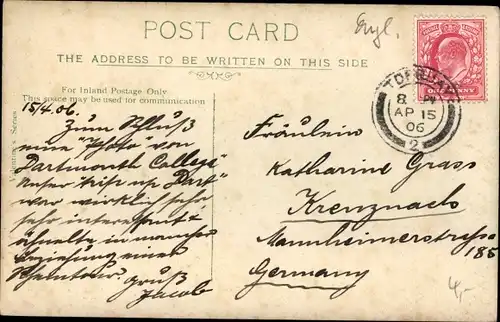 POST CARD
THE ADDRESS TO BE WRITTEN ON THIS SIDE
Engl.
For Inland Postage Only
This space may be used for communication
Valentine's Series
POSTAGE REVENUE
ONE PENNY
8
AP 15
06
2
15/4.06.
Zum Schluß
eine "Photo" von
Dartmouth College
Unser "trip up Dart"
war wirklich sehr
sehr interessant &
ähnelte in mancher
Beziehung einer
Rheintour. Gruß
Jacob
Fräulein
Katharine Grass
Kreuznach
Mannheimerstrasse
185
Germany
4,-